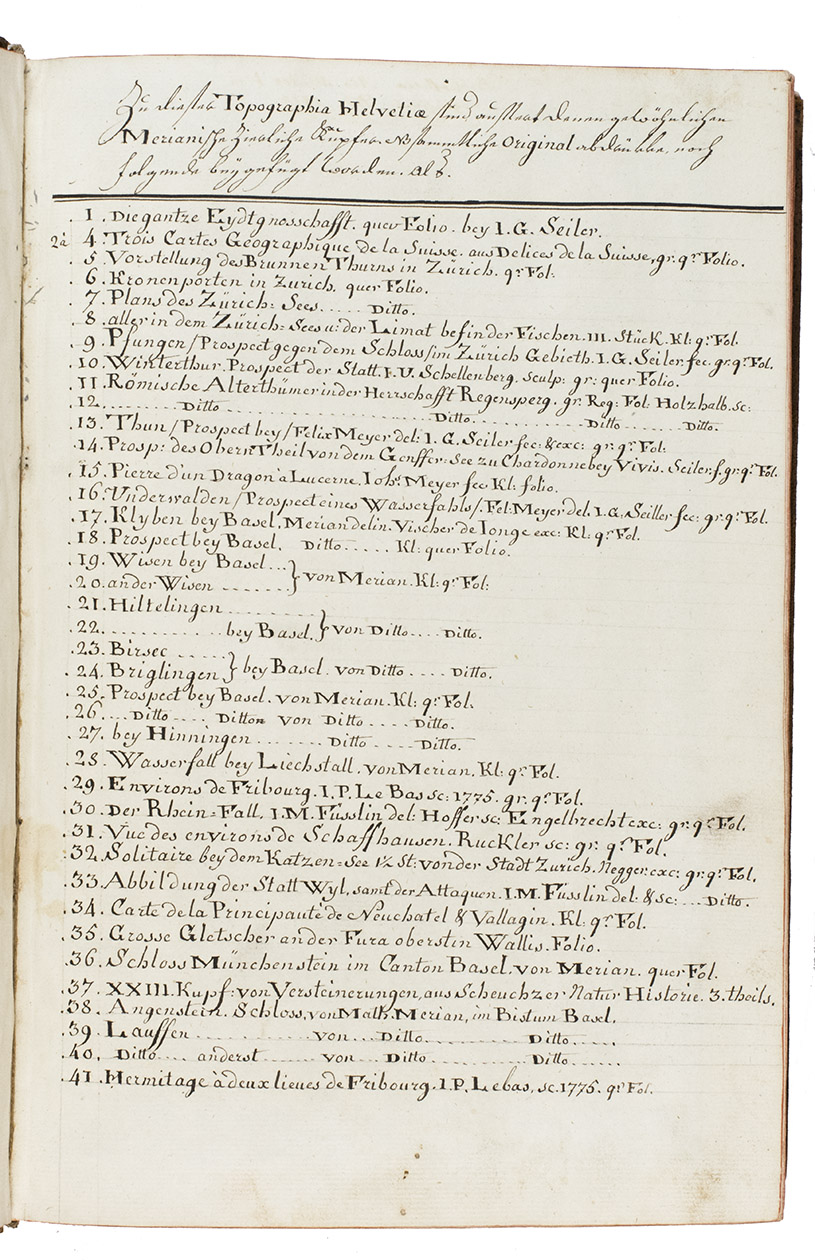 Zu dieser Topographia Helvetiæ sind aussert denen gewöhnlichen
Merianische Zierliche Kupfer, NB sammtliche Original abdrükke, noch
folgende beygefügt worden. als.
1. Die gantze Eydtgnosschafft. quer Folio. bey I. G. Seiler.
2 à 4. Trois Cartes Géographique de la Suisse. aus Delices de la Suisse, gr. qr. Folio.
5. Vorstellung des Brunnen Thurns in Zürich. qr. Fol:
6. Kronenporten in Zürich. quer Folio.
7. Plans des Zürich=Sees ..... Ditto.
8. aller in dem Zürich=Sees u: der Limat befinder Fischen. III. Stück. Kl: qr. Fol.
9. Pfungen/Prospect gegen dem Schloss/im Zürich Gebieth. I. G. Seiler. fec. gr. qr. Fol.
10. Winterthur. Prospect der Statt. I. U. Schellenberg. sculp: gr: quer Folio.
11. Römische Alterthümer in der Herrschafft Regensperg. gr. Reg: Fol: Holzhalb. sc:
12. ........ Ditto ........ Ditto ........ Ditto ...... Ditto.
13. Thun/Prospect bey/Felix Meyer del: I. G. Seiler fec: & exc: gr: qr. Fol:
14. Prosp: des Obern Theil von dem Genffer-See zu Chardonne bey Vivis. Seiler. f. gr. qr. Fol.
15. Pierre d'un Dragon à Lucerne. Ioh: Meyer fec Kl: folio.
16. Underwalden/Prospect eines Wasserfahls/. Fel: Meyer del. I. G. Seiller fec: gr: qr. Fol.
17. Klyben bey Basel. Merian delin. Vischer de Ionge exc: Kl: qr. Fol.
18. Prospect bey Basel. Ditto ..... Kl: quer Folio.
19. Wisen bey Basel ...
20. an der Wisen ....... } von Merian. Kl: qr. Fol:
21. Hiltelingen ........
22. .......... bey Basel. } von Ditto .... Ditto.
23. Birsec .....
24. Briglingen } bey Basel. von Ditto .... Ditto.
25. Prospect bey Basel. von Merian. Kl: qr. Fol.
26. ... Ditto .... Ditton von Ditto .... Ditto.
27. bey Hinningen ....... Ditto .... Ditto.
28. Wasserfall bey Liechstall. von Merian. Kl: qr. Fol.
29. Environs de Fribourg. I. P. Le Bas sc: 1775. gr. qr. Fol.
30. Der Rhein=Fall. I. M. Füsslin del: Hoffer sc: Engelbrecht exc: gr: qr. Fol.
31. Vue des environs de Schaffhausen. Ruckler sc: gr: qr. Fol.
32. Solitaire bey dem Katzen=See 1½ St: von der Stadt Zürich. Negger. exc: gr: qr. Fol.
33. Abbildung der Statt Wyl, samt der Attaquen. I. M. Füsslin del: & sc: ... Ditto.
34. Carte de la Principauté de Neuchatel & Vallagin. Kl: qr. Fol.
35. Grosse Gletscher an der Fura oberst in Wallis. Folio.
36. Schloss Münchenstein im Canton Basel. von Merian. quer Fol.
37. XXIII. Kupf: von Versteinerungen, aus Scheuchzer Natur Historie. 3. theils.
38. Angenstein. Schloss, von Math: Merian, im Bistum Basel.
39. Lauffen .......... von ... Ditto ......... Ditto .....
40. Ditto .... anderst ..... von ... Ditto ......... Ditto .....
41. Hermitage à deux lieues de Fribourg. I. P. Lebas. sc. 1775. qr. Fol.